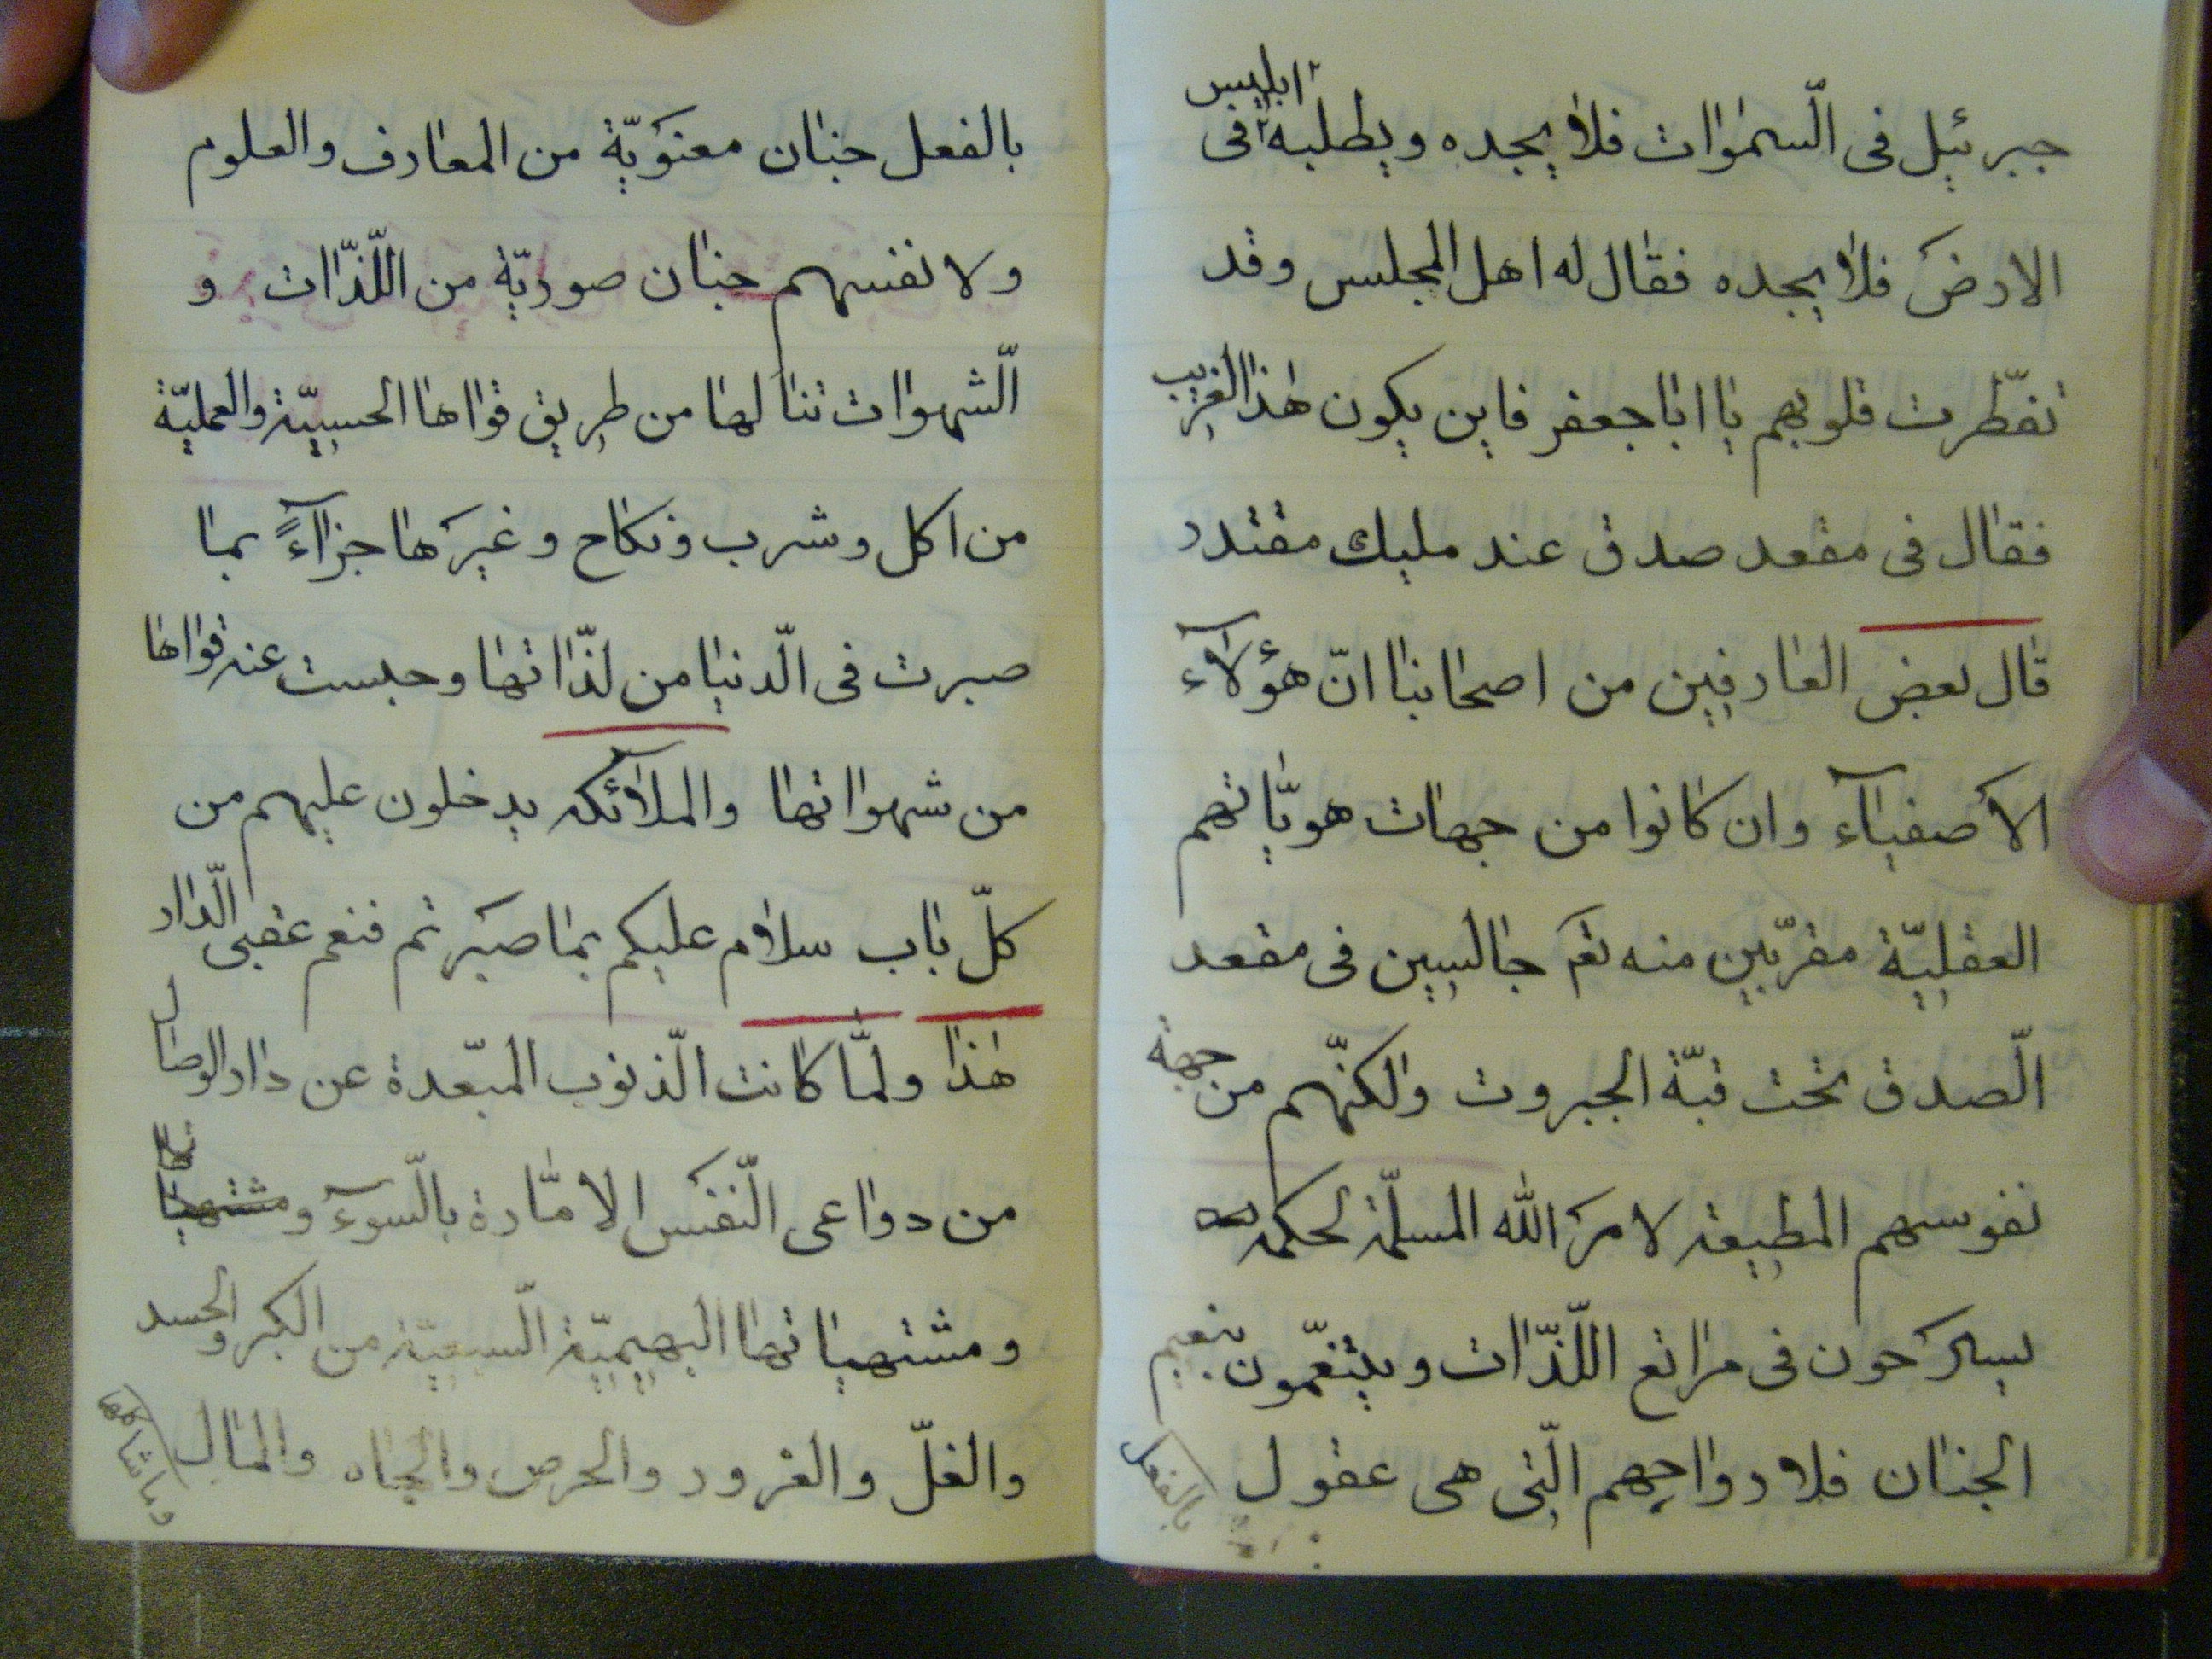 جبرئیل فی الّسمٰوات فلاٰ یجده ویطلبه ابلیس فی
الارضَ فلاٰ یجده فقٰال له اهل المجلس وقد
تفطّرت قلوبهم یٰا ابٰا جعفر فاین یکون هٰذا الغریب
فقٰال فی مقعد صدق عند ملیك مقتدر
قٰال بعض العٰارفین من اصحٰابنٰا انّ هؤلآء
الاَصفیٰآء وان کٰانوا من جهات هویّٰاتهم
العقلیّة مقربّین منه تعَ جٰالسین فی مقعد
الّصدق تحت قبّة الجبروت ولٰکنّهم من جهة
نفوسهم المطیعة لامرَ الله المسلّمة لحکمه
یسرَحون فی مرٰاتع اللّذّات ویتنعّمون بنعیم
الجنٰان فلارواحهم الّتی هی عقول بالفعل
بالفعل جنٰان معنوَیّة من المعٰارف والعلوم
ولانفسهم جنٰان صوریّة من اللّذّات و
الّشهوات تنٰالهٰا من طریق قوٰاهٰا الحسیّة والعملیّة
من اکل وشرب ونکٰاح وغیرَهٰا جزآءً بمٰا
صبرت فی الّدنیٰا من لذّاتهٰا وحبست عنه قوٰاهٰا
من شهوٰاتهٰا والملآئکه یدخلون علیهم من
کلّ بٰاب سلاٰم علیکم بمٰا صبَرتم فنعم عقبی الّدار
هٰذا ولمّٰا کٰانت الّذنوب المبّعدة عن دٰار الوصٰال
من دوٰاعی الّنفسَ الامّٰارة بالّسوٓء و مشتهیٰا تها
ومشتهیٰاتهٰا البهیمیّة الّسبعیّة من الکبر والحسد
والغلّ والغرور والحرص والجٰاه والمٰال وماشاکلها